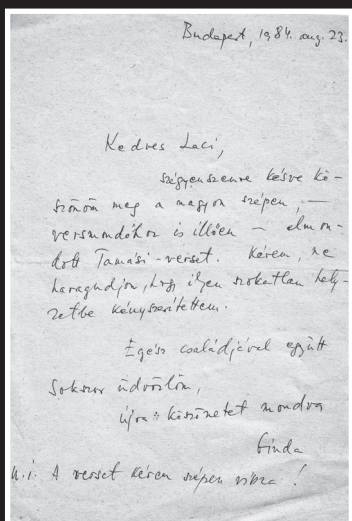 Budapest, 1984. aug. 23.
Kedves Laci,
szégyenszemre késve kö-
szönöm meg a nagyon szépen, —
versmondókhoz is illően — elmon-
dott Tamási-verset. Kérem, ne
haragudjon, hogy ilyen szokatlan hely-
zetbe kényszerítettem.
Egész családjával együtt
sokszor üdvözlöm,
újra is köszönetet mondva
Ginda
U.i. A verset kérem szépen vissza!